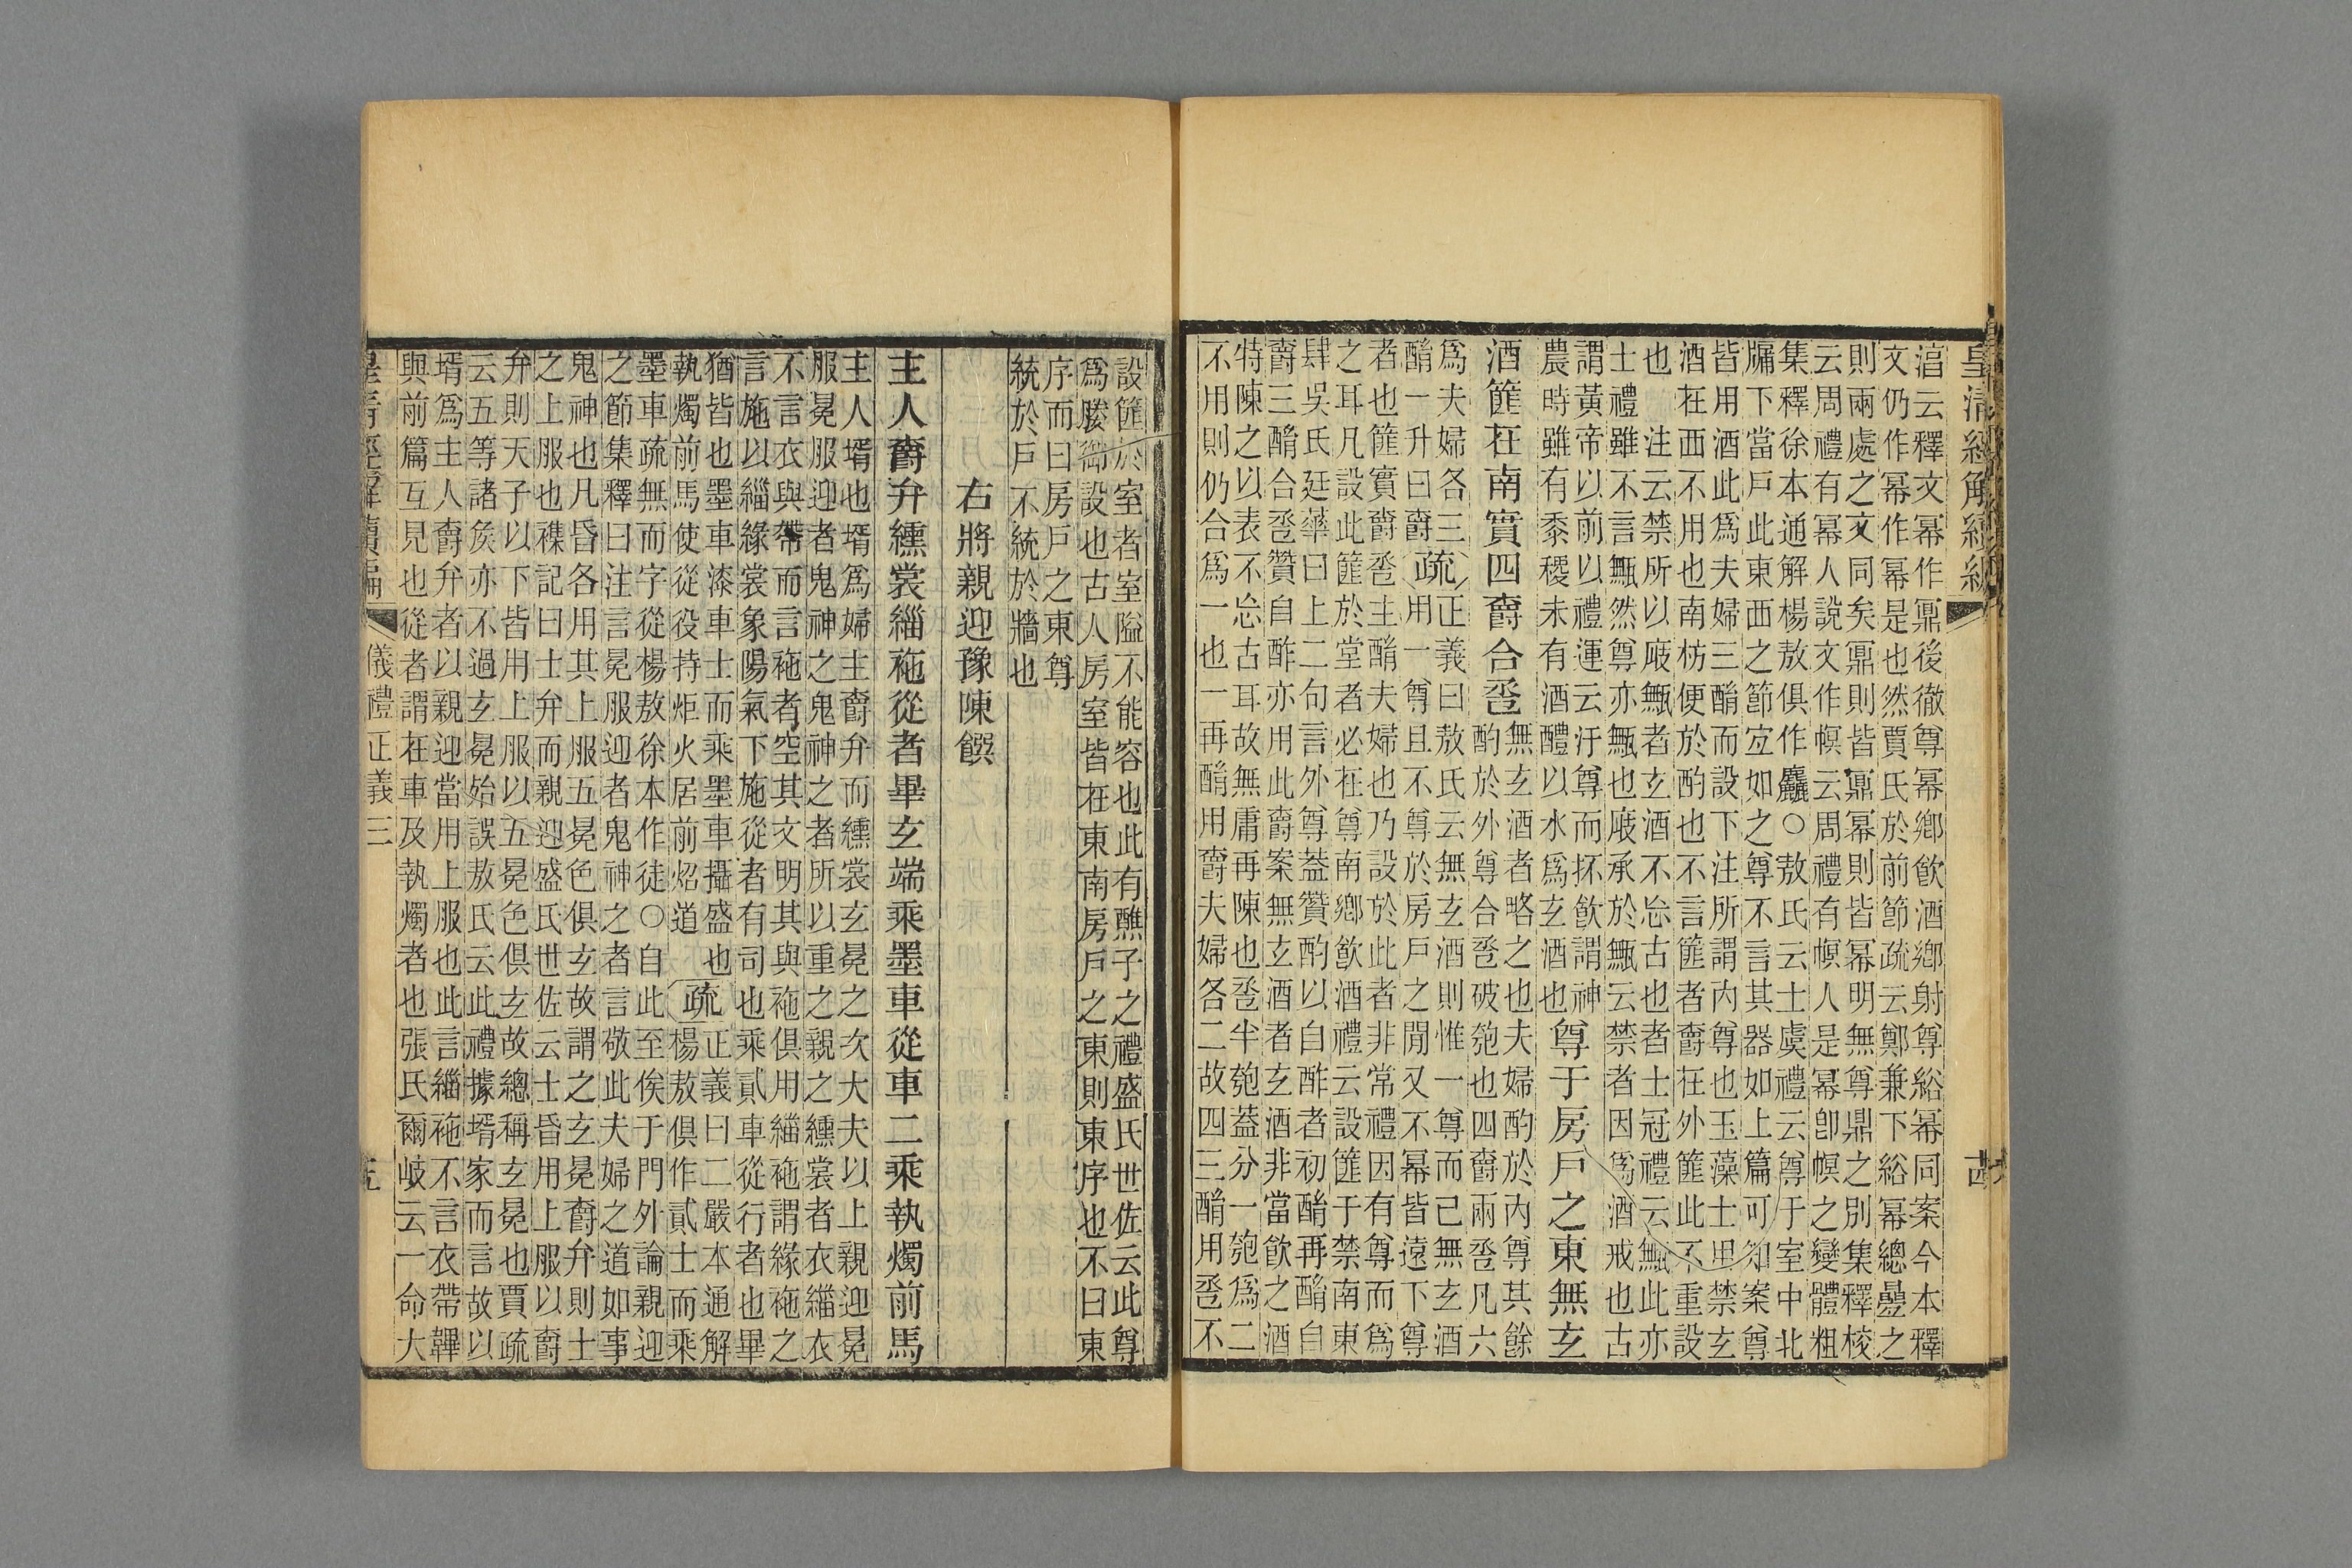 皇清經解續編
湆云釋文冪作鼏後徹尊冪鄉飲酒鄉射尊綌冪同案今本釋
文仍作冪作冪是也然賈氏於前節疏云鄭兼下綌冪總疊之
則兩處之文同矣鼏則皆鼏冪則皆冪明無尊鼎之別集釋校
云周禮有冪人說文作幎云周禮有幎人是冪卽幎之變體粗
集釋徐本通解楊敖俱作麤○敖氏云士虞禮云尊于室中北
牖下當戶此東西之節宜如之尊不言其器如上篇可知案尊
皆用酒此爲夫婦三酳而設下注所謂內尊也玉藻士用禁玄
酒在西不用也南枋便於酌也不言篚者爵在外篚此不重設
也　注云禁所以庪甒者玄酒不忘古也者士冠禮云甒此亦
士禮雖不言甒然尊亦甒也庪承於甒云禁者因爲酒戒也古
謂黃帝以前以禮運云汙尊而抔飲謂神
農時雖有黍稷未有酒醴以水爲玄酒也
尊于房戶之東無玄
酒篚在南實四爵合卺
無玄酒者略之也夫婦酌於內尊其餘
酌於外尊合卺破匏也四爵兩卺凡六
爲夫婦各三
酳一升曰爵
疏
正義曰敖氏云無玄酒則惟一尊而已無玄酒
用一尊且不尊於房戶之閒又不冪皆遠下尊
者也篚實爵卺主酳夫婦也乃設於此者非常禮因有尊而爲
之耳凡設此篚於堂者必在尊南鄉飲酒禮云設篚于禁南東
肆吳氏廷華曰上二句言外尊蓋贊酌以自酢者初酳再酳自
爵三酳合卺贊自酢亦用此爵案無玄酒者玄酒非當飲之酒
特陳之以表不忘古耳故無庸再陳也卺半匏蓋分一匏爲二
不用則仍合爲一也一再酳用爵夫婦各二故四三酳用卺不
設篚於室者室隘不能容也此有醮子之禮盛氏世佐云此尊
爲媵御設也古人房室皆在東南房戶之東則東序也不曰東
序而曰房戶之東尊
統於戶不統於牆也
右將親迎豫陳饌
主人爵弁纁裳緇袘從者畢玄端乘墨車從車二乘執燭前馬
主人壻也壻爲婦主爵弁而纁裳玄冕之次大夫以上親迎冕
服冕服迎者鬼神之鬼神之者所以重之親之纁裳者衣緇衣
不言衣與帶而言袘者空其文明其與袘俱用緇袘謂緣袘之
言施以緇緣裳象陽氣下施從者有司也乘貳車從行者也畢
猶皆也墨車漆車士而乘墨車攝盛也
執燭前馬使從役持炬火居前炤道
疏
正義曰二嚴本通解
楊敖俱作貳士而乘
墨車疏無而字從楊敖徐本作徒○自此至俟于門外論親迎
之節集釋曰注言冕服迎者鬼神之者言敬此夫婦之道如事
鬼神也凡昏各用其上服五冕色俱玄故謂之玄冕爵弁則士
之上服也襍記曰士弁而親迎盛氏世佐云士昏用上服以爵
弁則天子以下皆用上服以五冕色俱玄故總稱玄冕也賈疏
云五等諸矦亦不過玄冕始誤敖氏云此禮據壻家而言故以
壻爲主人爵弁者以親迎當用上服也此言緇袘不言衣帶韠
與前篇互見也從者謂在車及執燭者也張氏爾岐云一命大
儀禮正義三